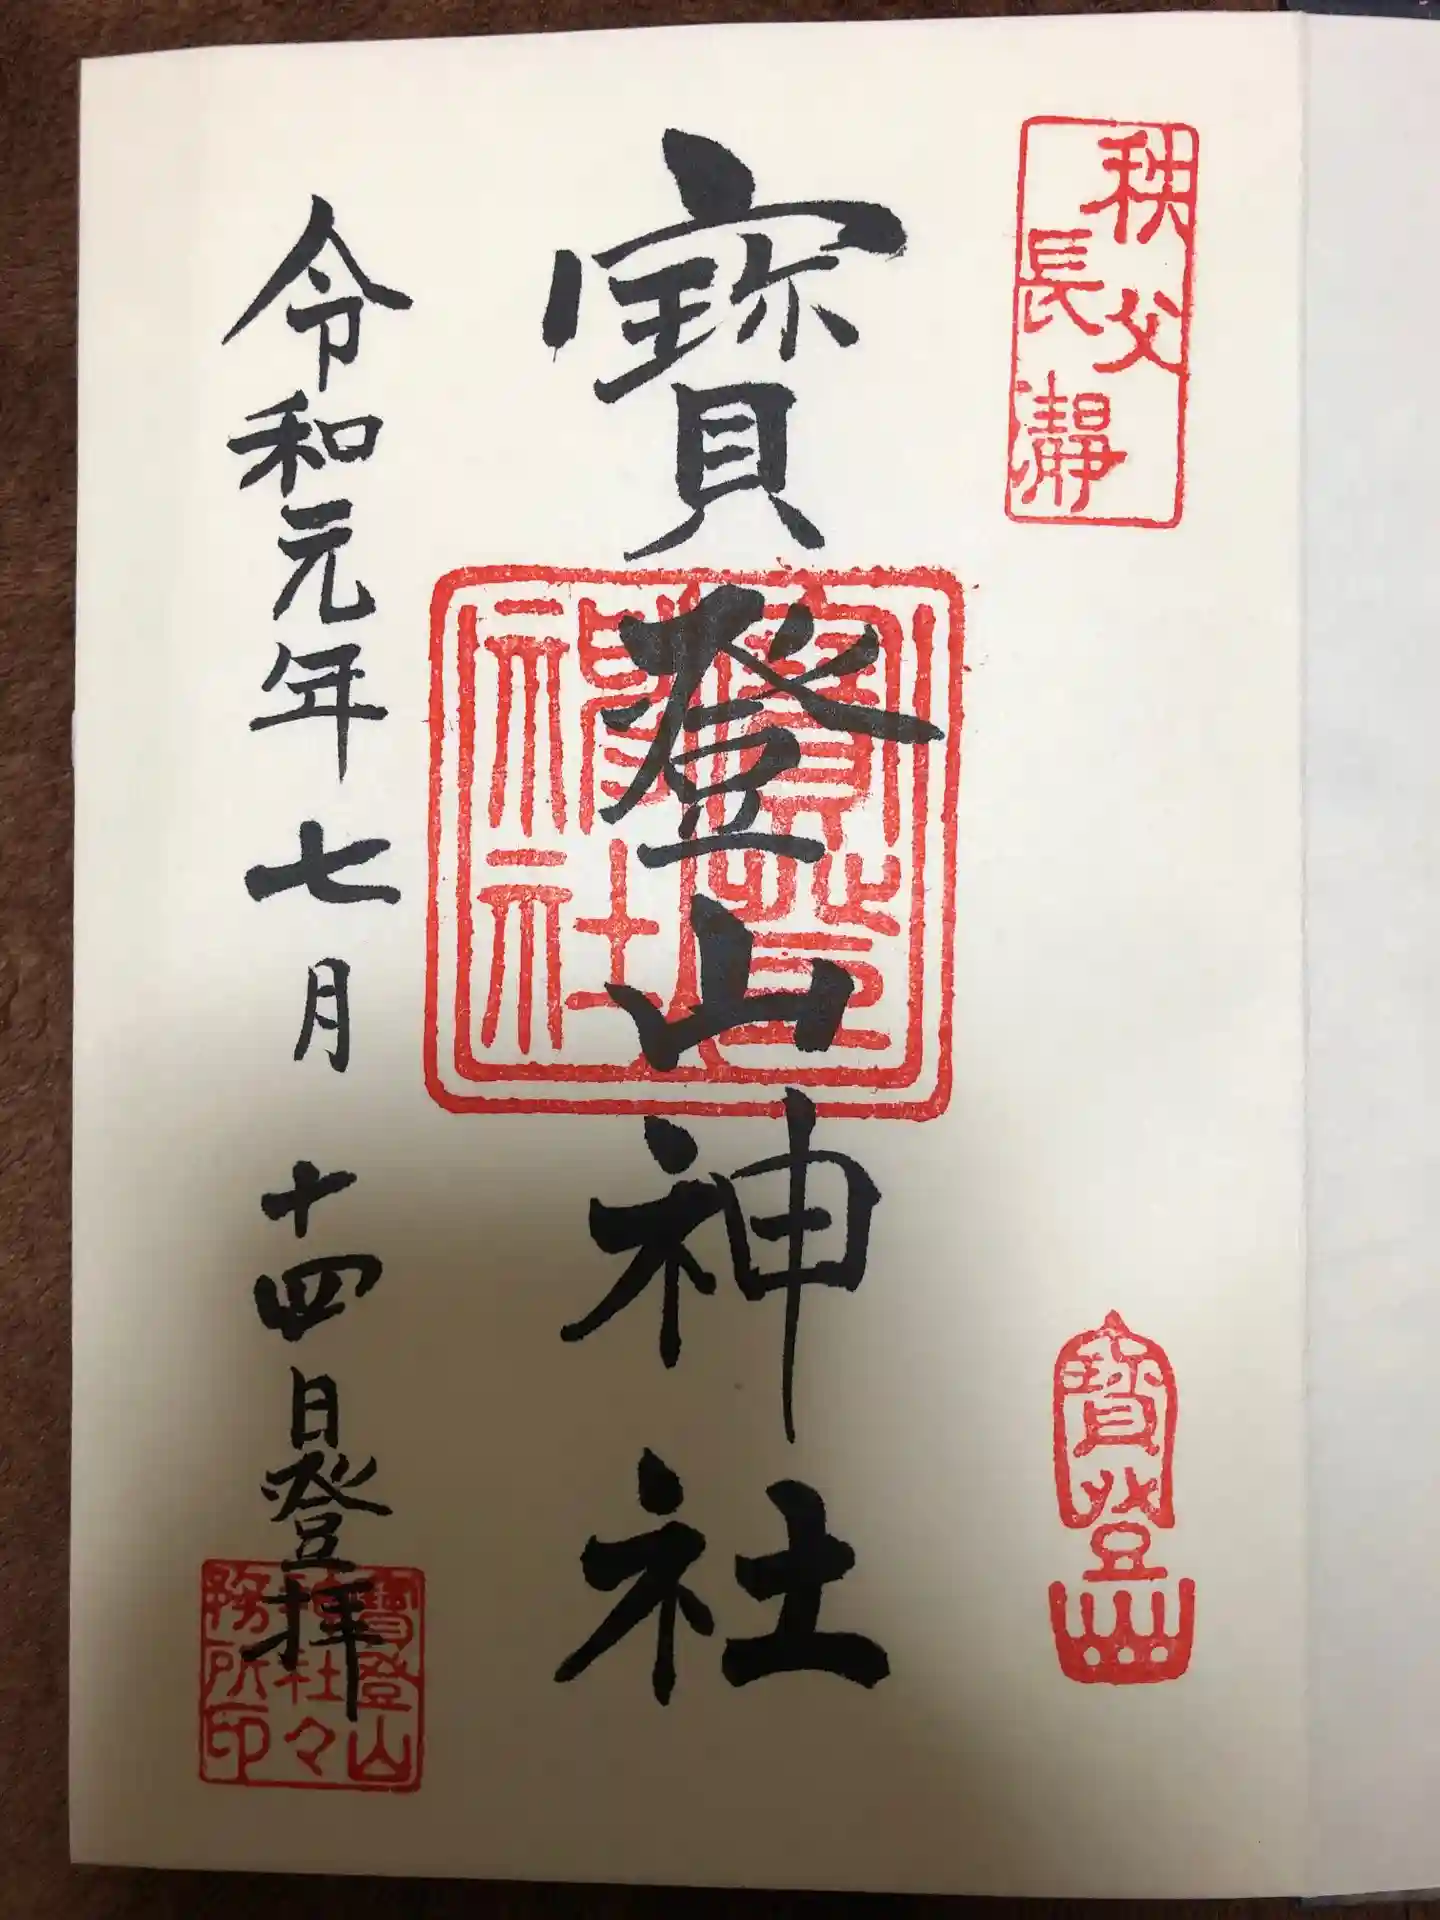 秩父
長瀞
寳登山
寳登山神社
寳登山
神社
令和元年七月十四日登拝
寳登山
神社々
務所印